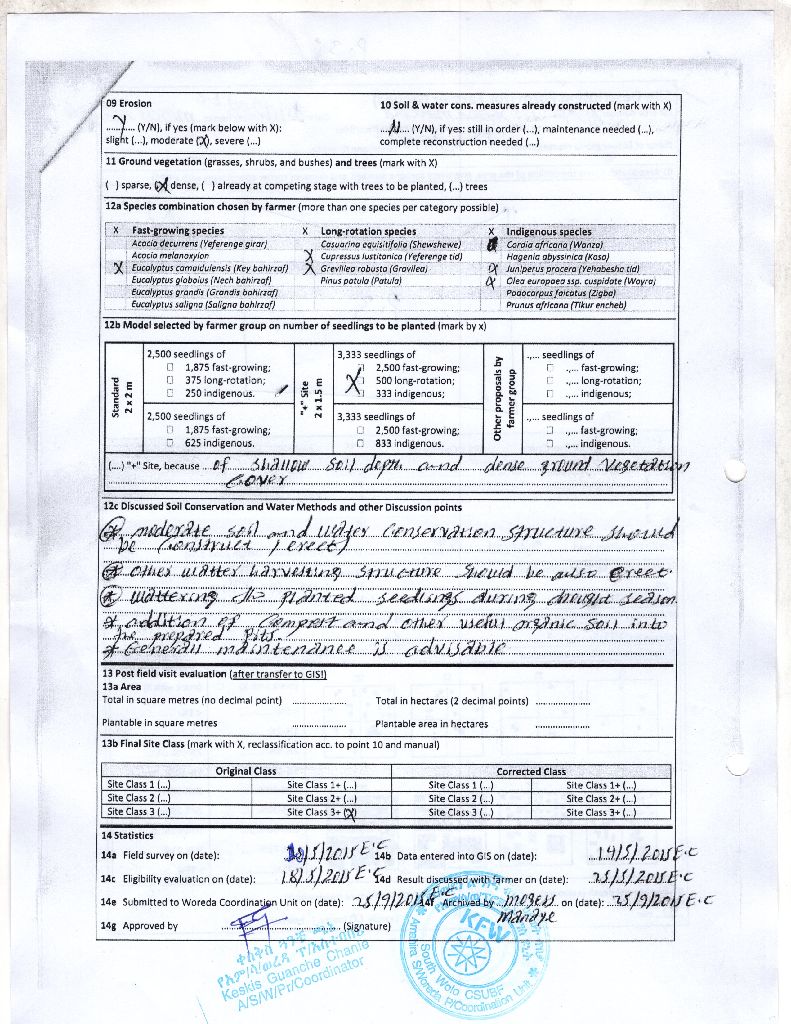 09 Erosion 10 Soil & water cons. measures already constructed (mark with X)
...Y... (Y/N), if yes (mark below with X): ...N... (Y/N), if yes: still in order (...), maintenance needed (...),
slight (...), moderate (X), severe (...) complete reconstruction needed (...)
11 Ground vegetation (grasses, shrubs, and bushes) and trees (mark with X)
( ) sparse, (X) dense, ( ) already at competing stage with trees to be planted, (...) trees
12a Species combination chosen by farmer (more than one species per category possible)
X Fast-growing species X Long-rotation species X Indigenous species
Acacia decurrens (Yeferenge girar) Casuarina equisitifolia (Shewshewe) Cordia africana (Wanza)
Acacia melanoxylon X Cupressus lusitanica (Yeferenge tid) Hagenia abyssinica (Koso)
X Eucalyptus camaldulensis (Key bahirzaf) X Grevillea robusta (Gravilea) X Juniperus procera (Yehabesha tid)
Eucalyptus globolus (Nech bahirzaf) Pinus patula (Patula) X Olea europaea ssp. cuspidate (Woyra)
Eucalyptus grandis (Grandis bahirzaf) Podocarpus falcatus (Zigba)
Eucalyptus saligna (Saligna bahirzaf) Prunus africana (Tikur encheb)
12b Model selected by farmer group on number of seedlings to be planted (mark by x)
Standard 2 x 2 m
2,500 seedlings of
1,875 fast-growing;
375 long-rotation;
250 indigenous.
2,500 seedlings of
1,875 fast-growing;
625 indigenous.
"+" Site 2 x 1.5 m
3,333 seedlings of
2,500 fast-growing;
X 500 long-rotation;
333 indigenous;
3,333 seedlings of
2,500 fast-growing;
833 indigenous.
Other proposals by farmer group
.,... seedlings of
.,... fast-growing;
.,... long-rotation;
.,... indigenous;
.,... seedlings of
.,... fast-growing;
.,... indigenous.
(....) "+" Site, because ...of shallow soil depth and dense ground vegetation
cover
12c Discussed Soil Conservation and Water Methods and other Discussion points
* moderate soil and water conservation structure should
be construct (erect)
* other watter harvesting structure should be also erect.
* wattering the planted seedlings during drought season
* addition of compost and other useful organic soil into
the prepared pits.
* General maintenance is advisable
13 Post field visit evaluation (after transfer to GIS!)
13a Area
Total in square metres (no decimal point) .................. Total in hectares (2 decimal points) ..................
Plantable in square metres .................. Plantable area in hectares ..................
13b Final Site Class (mark with X, reclassification acc. to point 10 and manual)
Original Class Corrected Class
Site Class 1 (...) Site Class 1+ (...) Site Class 1 (...) Site Class 1+ (...)
Site Class 2 (...) Site Class 2+ (...) Site Class 2 (...) Site Class 2+ (...)
Site Class 3 (...) Site Class 3+ (X) Site Class 3 (...) Site Class 3+ (..)
14 Statistics
14a Field survey on (date): /5/2015 E.C 14b Data entered into GIS on (date): 14/5/2015 E.C
14c Eligibility evaluation on (date): 18/5/2015 E.C 14d Result discussed with farmer on (date): 25/5/2015 E.C
14e Submitted to Woreda Coordination Unit on (date): 25/9/2015 E.C 14f Archived by Mogess Mandye on (date): 25/9/2015 E.C
14g Approved by .................. (Signature)
Keskis Guanche Chanie
A/S/W/Pr/Coordinator
KFW
South Wolo CSUBF
Amhara S/Woreda P/Coordination Unit